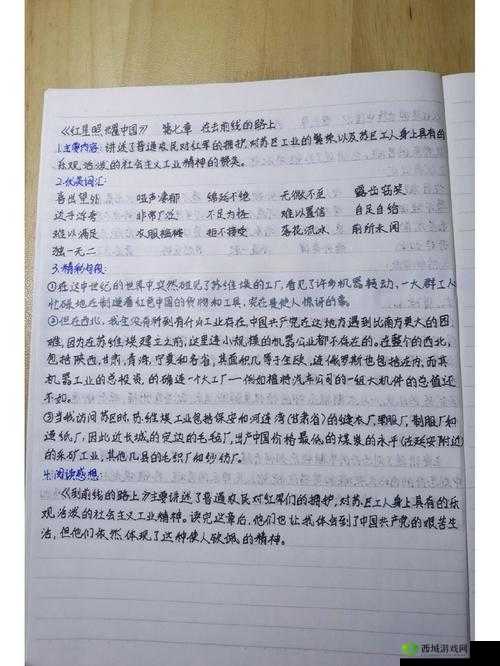 《红星照耀中国》 第七章 在去前线的路上
1.主要内容:讲述了普通农民对红军的拥护,对苏区工业的繁荣,以及苏区工人身上具有的
乐观活泼的社会主义工业精神的赞美。
2.优美词汇:
喜出望外 哑声凄郁 绵延不绝 无微不至 露齿窃笑
近于浮夸 非常广泛 不足为怪 难以置信 自足自给
难以满足 衣服褴褛 拒不接受 落花流水 前所未闻
独一无二
3.精彩句段:
①在这中世纪的世界中突然碰见了苏维埃的工厂,看见了许多机器转动,一大群工人
忙碌地在制造着红色中国的货物和工具,实在是使人惊讶的事。
②但在西北,我
难,因为在苏维埃建立之前,这里连小规模的机器公业都不存在的,在整个的西北,
包括陕西,甘肃,青海,宁夏和各省,其面积几等于全欧,连俄罗斯也包括在内,而其
机器工业的总投资,的确连一个大工厂——例如福特汽车公司的一组大机件的总值还
不如。
③当我访问苏区时,苏维埃工业包括保安和河连湾(甘肃省)的缝衣厂,
造纸厂,因此近长城的定边的毛毡厂,出产中国价格最低的煤炭的永平(近延安附近)
的采矿工业,其他几县的毛织厂和纱仿厂。
4.阅读感想:
《到前线的路上》主要讲述了普通农民对红军们的拥护,对苏区工人身上具有的乐
观活泼的社会主义工业精神。读完这章后,他们也让我体会到了中国共产党的艰苦生
活,但他们依然体现了这种使人钦佩的精神。
西域游戏网